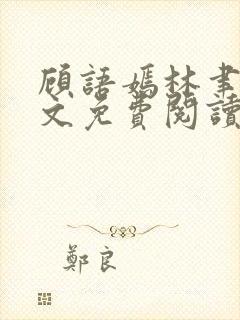 顧語嫣林聿
文免費閱讀
鄭良